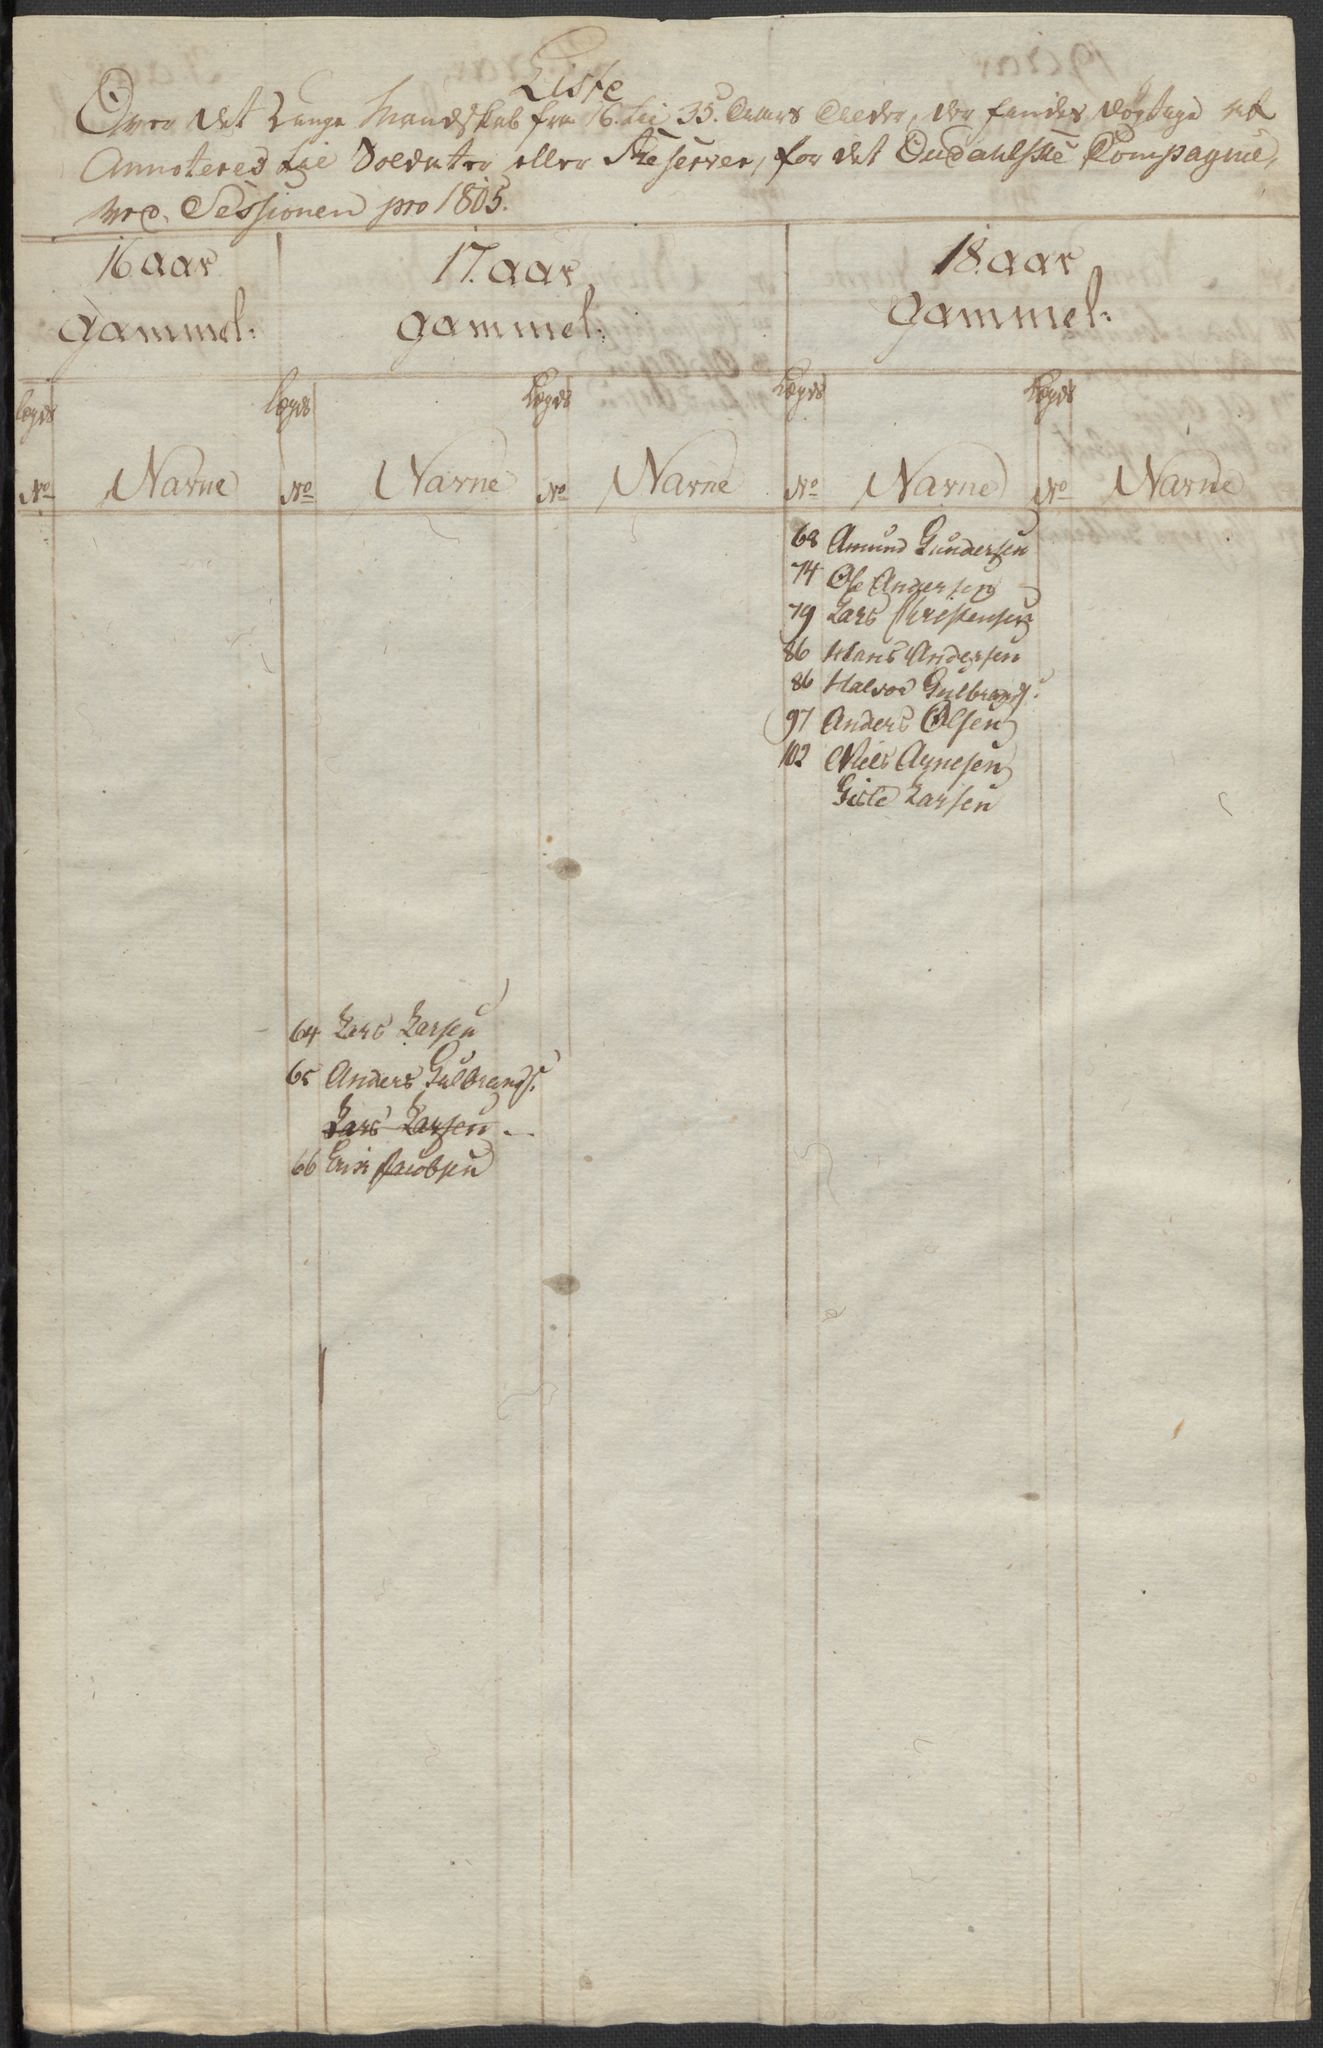 Liste
Over det unge Mandskab fra 16. til 35. Aars Alder, der findes døgtige at
Annoteres til Soldater eller Reserver, for det Oudahlske Compagnie,
ved Sessionen pro 1805.
16 aar 17. aar 18. aar
gammel: gammel: gammel:
Lægds Lægds Lægds Lægds Lægds
No Navne No Navne No Navne No Navne No Navne
68 Amund Gundersen
74 Ole Andersen
79 Lars Christensen
86 Hans Andersen
86 Halvor Gulbrands:
97 Anders Olsen
102 Niels Agnesen
Larsen
64 Lars Larsen
65 Anders Gulbrands:
Lars Larsen
66 Erik Jacobsen